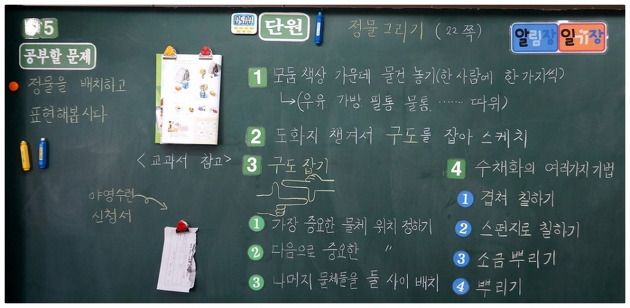 5
단원
정물 그리기 (22쪽)
알림장
일기장
공부할 문제
정물을 배치하고
표현해봅시다
<교과서 참고>
야영수련
신청서
1 모둠 책상 가운데 물건 놓기(한 사람에 한 가지씩)
↳(우유 가방 필통 물통 …… 따위)
2 도화지 챙겨서 구도를 잡아 스케치
3 구도 잡기
1 가장 중요한 물체 위치 정하기
2 다음으로 중요한 〃
3 나머지 물체들을 둘 사이 배치
4 수채화의 여러가지 기법
1 겹쳐 칠하기
2 스펀지로 칠하기
3 소금 뿌리기
4 뿌리기